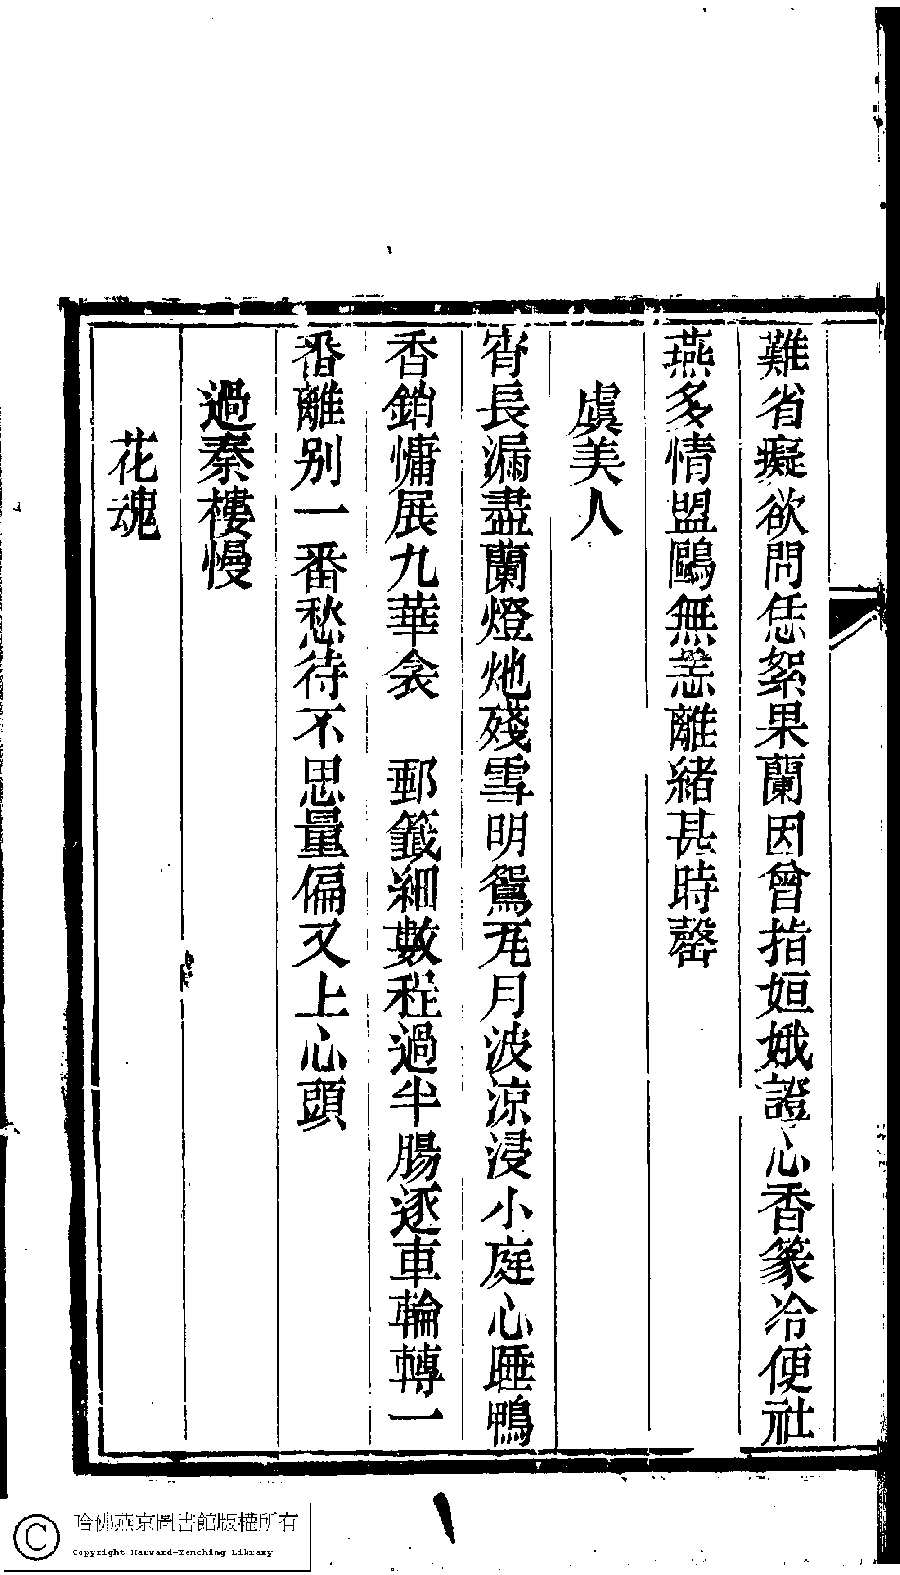 難省癡欲問恁絮果蘭因曾指姮娥證心香篆冷便社
燕多情盟鷗無恙離緒甚時罄
虞美人
宵長漏盡蘭燈灺殘雪明鴛瓦月波涼浸小庭心睡鴨
香銷慵展九華衾　郵籤細數程過半腸逐車輪轉一
番離別一番愁待不思量偏又上心頭
過秦樓慢
花魂
哈佛燕京圖書館版權所有
Copyright Harvard-Yenching Library